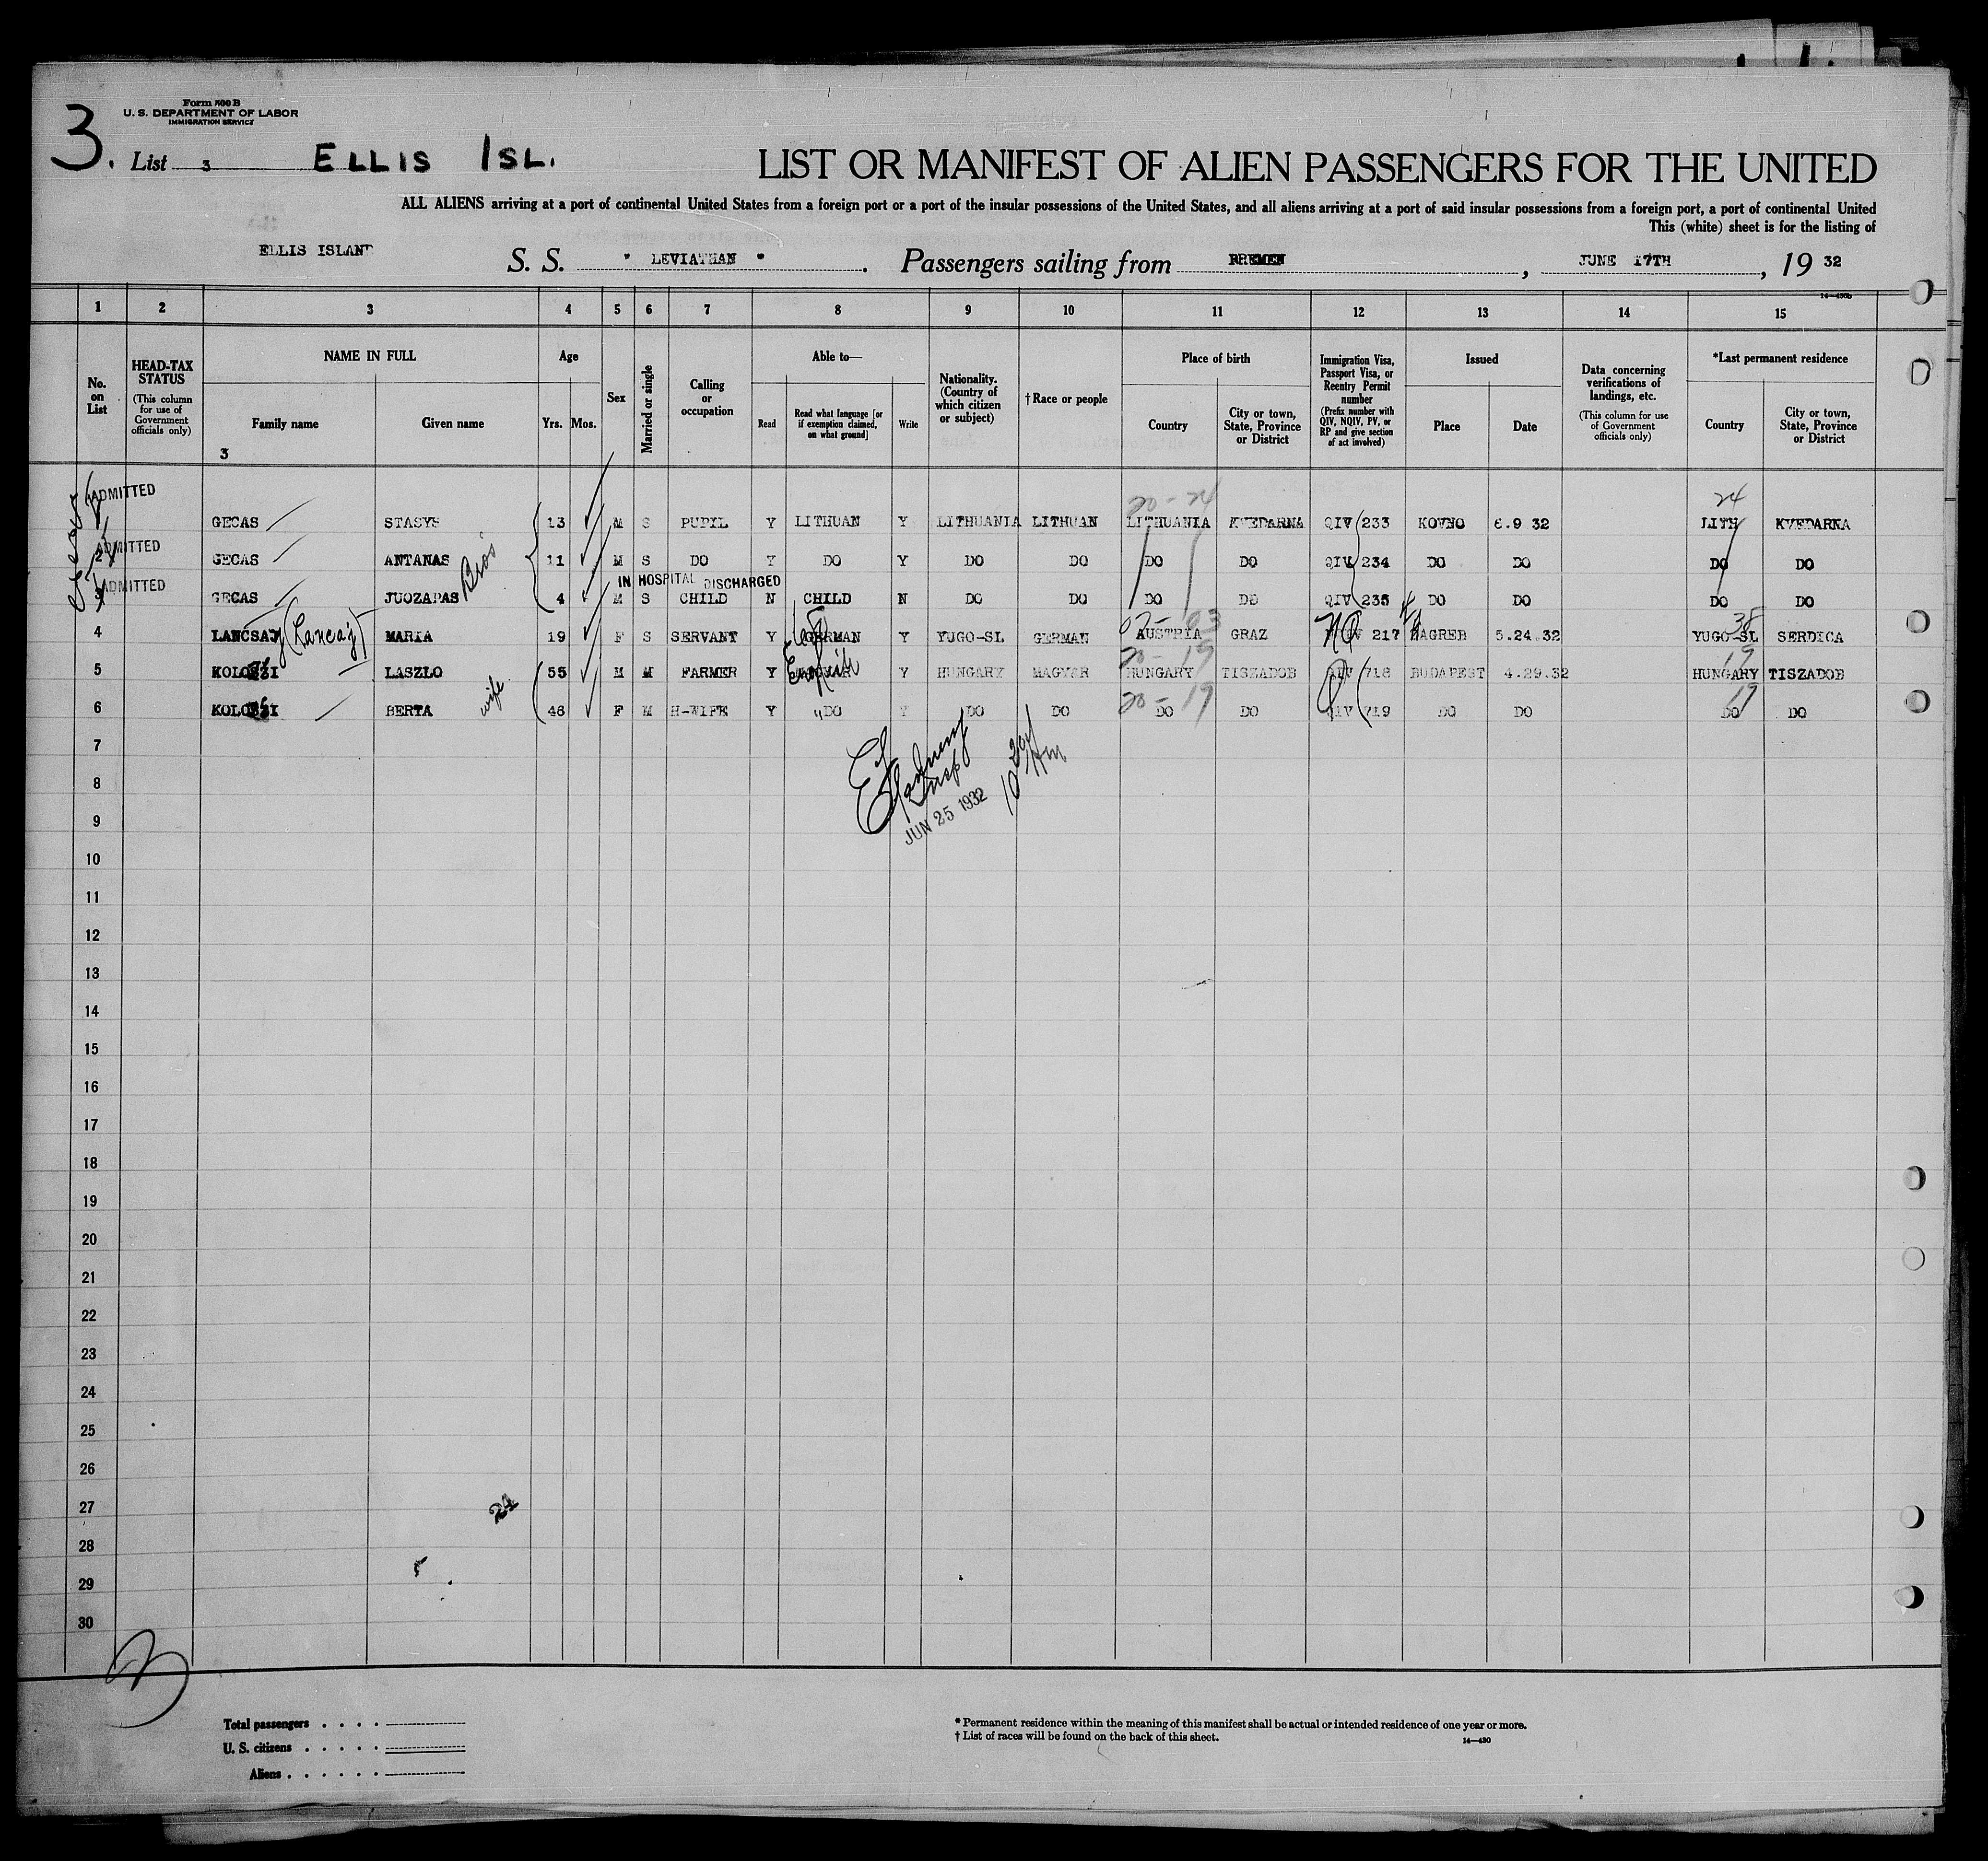 Form 500 B
U. S. DEPARTMENT OF LABOR
IMMIGRATION SERVICE
3. List 3 ELLIS ISL.
LIST OR MANIFEST OF ALIEN PASSENGERS FOR THE UNITED
ALL ALIENS arriving at a port of continental United States from a foreign port or a port of the insular possessions of the United States, and all aliens arriving at a port of said insular possessions from a foreign port, a port of continental United
This (white) sheet is for the listing of
ELLIS ISLAND S. S. " LEVIATHAN " . Passengers sailing from BREMEN , JUNE 17TH , 19 32
14—430b
1 2 3 4 5 6 7 8 9 10 11 12 13 14 15
No. on List
HEAD-TAX STATUS (This column for use of Government officials only)
NAME IN FULL Family name Given name
Age Yrs. Mos.
Sex
Married or single
Calling or occupation
Able to— Read Read what language [or if exemption claimed, on what ground] Write
Nationality. (Country of which citizen or subject)
† Race or people
Place of birth Country City or town, State, Province or District
Immigration Visa, Passport Visa, or Reentry Permit number (Prefix number with QIV, NQIV, PV, or RP and give section of act involved)
Issued Place Date
Data concerning verifications of landings, etc. (This column for use of Government officials only)
*Last permanent residence Country City or town, State, Province or District
3
ADMITTED 20 - 24 24
GECAS STASYS 13 M S PUPIL Y LITHUAN Y LITHUANIA LITHUAN LITHUANIA KVEDARNA QIV 233 KOVNO 6.9 32 LITH KVEDARNA
ADMITTED
2 GECAS ANTANAS Bros 11 M S DO Y DO Y DO DO DO DO QIV 234 DO DO DO DO
ADMITTED IN HOSPITAL DISCHARGED
3 GECAS JUOZAPAS 4 M S CHILD N CHILD N DO DO DO DO QIV 235 DO DO DO DO
02 - 03 38
4 LANCSAJ (Lancaj) MARIA 19 F S SERVANT Y GERMAN Y YUGO-SL GERMAN AUSTRIA GRAZ NQIV 217 ZAGREB 5.24.32 YUGO-SL SERDICA
20 - 19 19
5 LASZLO 55 M M FARMER Y English MAGYAR Y HUNGARY MAGYAR HUNGARY TISZADOB QIV 718 BUDAPEST 4.29.32 HUNGARY TISZADOB
20 - 19 19
6 BERTA wife 46 F M H-WIFE Y " DO Y DO DO DO DO QIV 719 DO DO DO DO
7
8
JUN 25 1932
9
10
11
12
13
14
15
16
17
18
19
20
21
22
23
24
25
26
27 24
28
29
30
Total passengers . . . .
U. S. citizens . . . . .
Aliens . . . . . .
* Permanent residence within the meaning of this manifest shall be actual or intended residence of one year or more.
† List of races will be found on the back of this sheet.
14—430